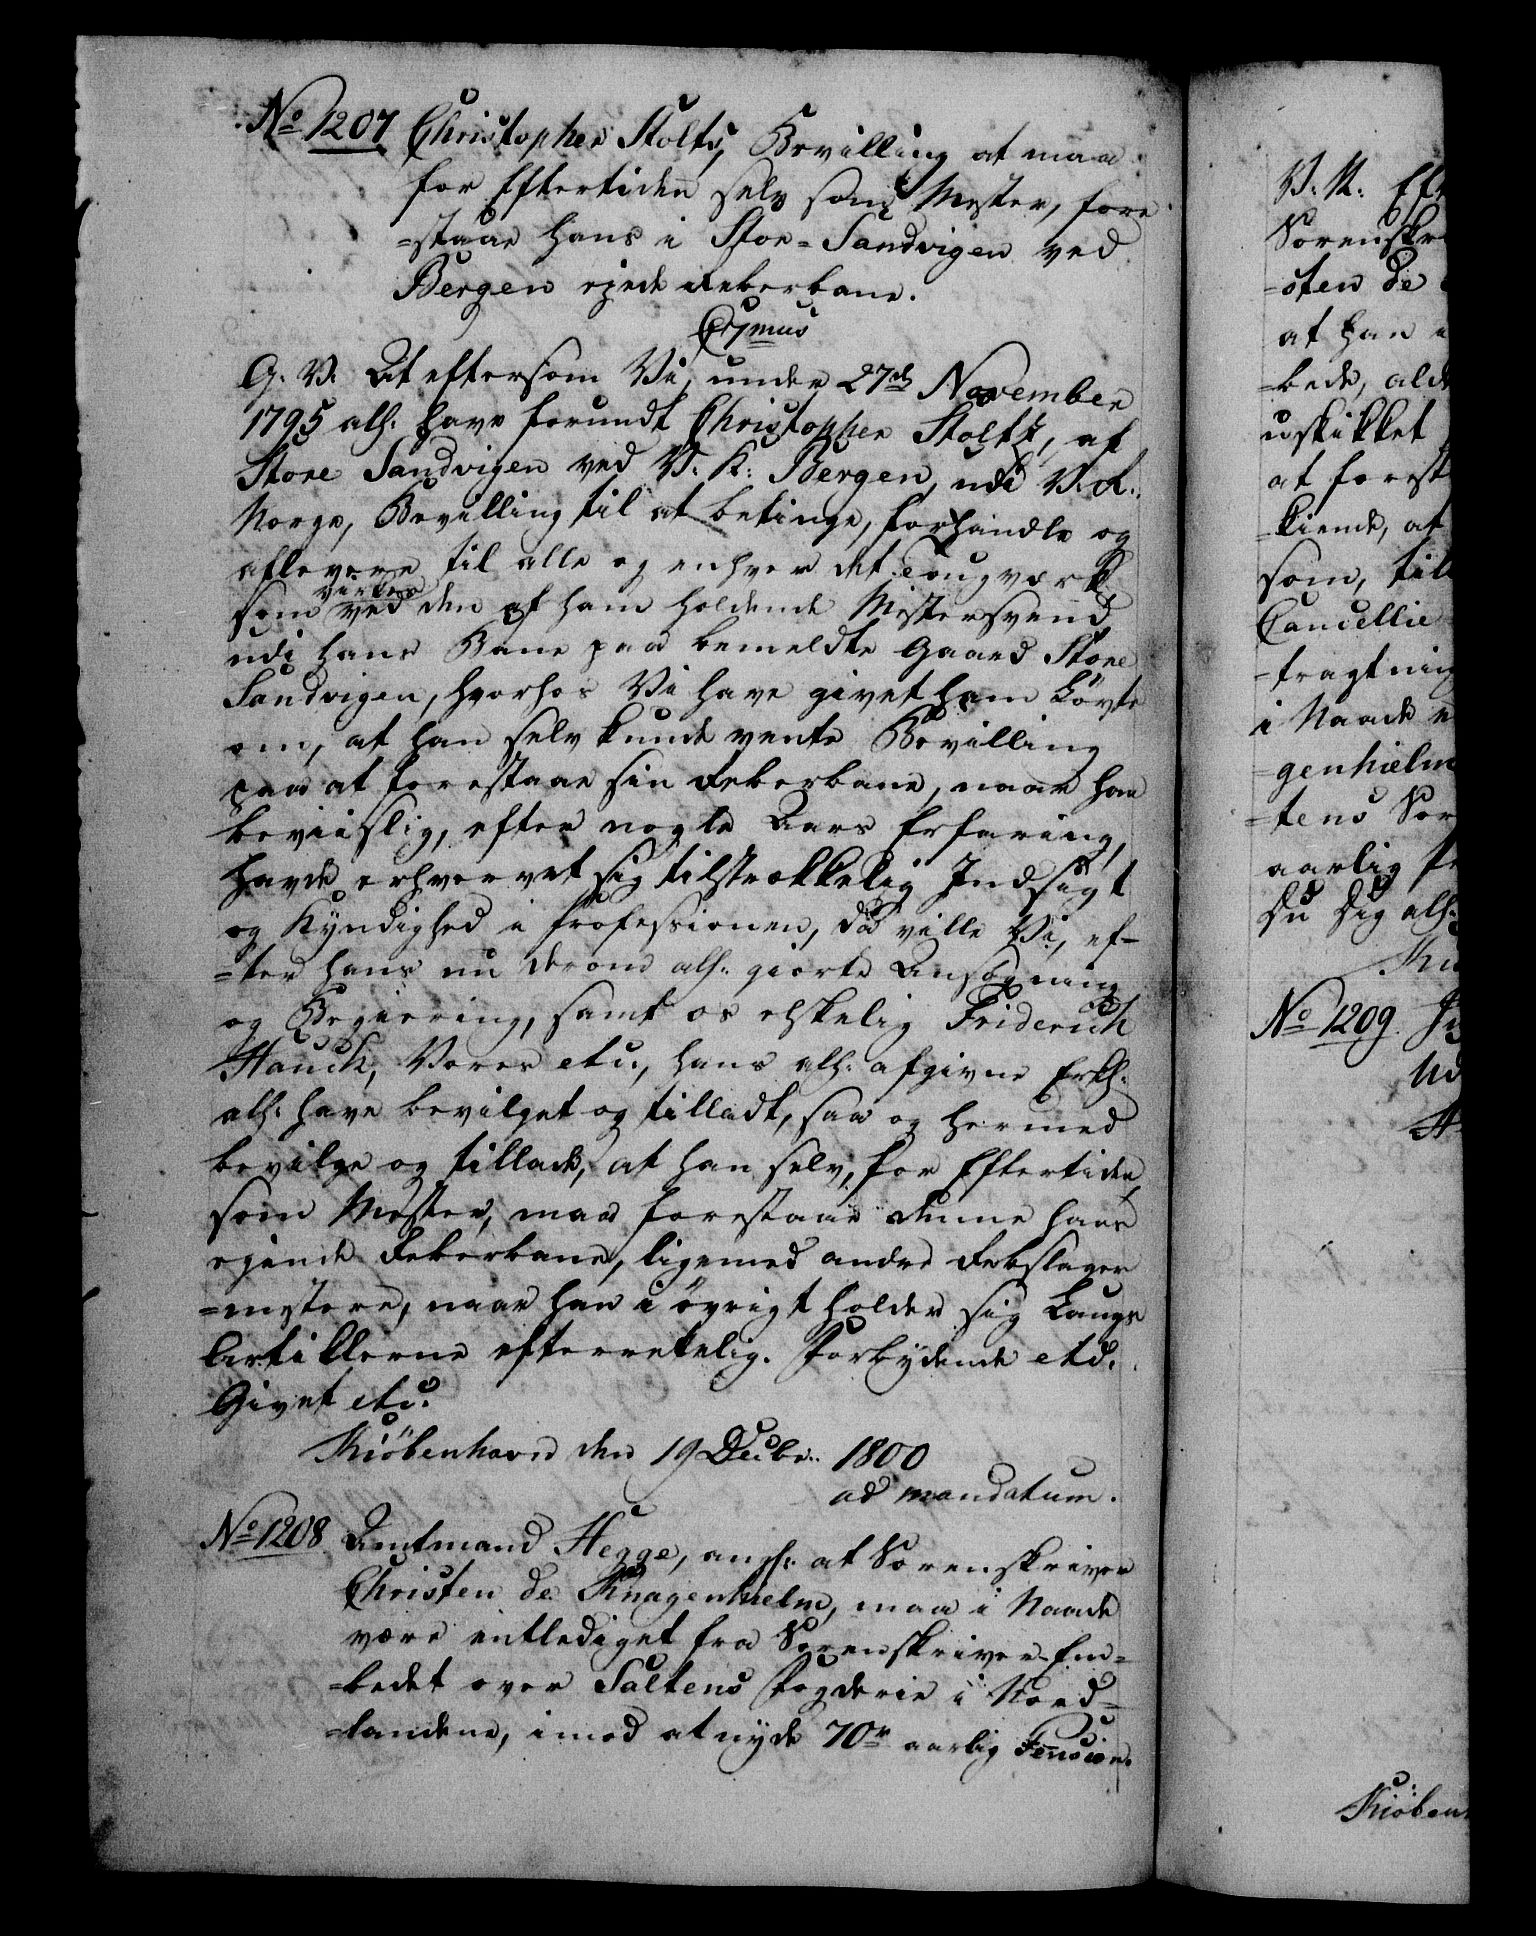 No 1207 Christopher Stoltz, Bevilling at maa
for Eftertiden selv som Mester, fore
=staae hans i Stor=Sandvigen ved
Bergen ejede Reberbane.
C7mus
G. V. At eftersom Vi, under 27de November
1795 alh: have forundt Christopher Stoltz, af
Store Sandvigen ved V. K: Bergen, udi V. R:
Norge, Bevilling til at betinge, forhandle og
aflevere til alle og enhver det Tougværk
som virkes ved den af ham holdende Mestersvend
udi hans Bane paa bemeldte Gaard Store
Sandvigen, hvorhos Vi have givet ham Løvte
om, at han selv kunde vente Bevilling
paa at forestaae sin Reberbane, naar han
beviislig, efter nogle Aars Erfaring,
havde erhvervet sig tilstrækkelig Indsigt
og Kyndighed i Professionen, da ville Vi, ef-
=ter hans nu derom alh: giorte Ansøgning
og Begiering, samt os elskelig Friderich
Hauch, Vores etc:, hans alh: afgivne Erkl:
alh: have bevilget og tilladt, saa og hermed
bevilge og tillade, at han selv, for Eftertiden,
som Mester, maa forestaae denne hans
ejende Reberbane, ligemed andre Rebslager
=mestere, naar han i øvrigt holder sig Laugs
Artiklerne efterrettelig. Forbydende etc:
Givet etc:
Kiöbenhavn den 19 Decbr: 1800
ad mandatum.
No 1208 Amtmand Hegge, anh: at Sorenskriver
Christen de Knagenhielm, maa i Naade
være entlediget fra Sorenskriver-Em=
=bedet over Saltens Fogderie i Nord=
=landene, imod at nyde 70r aarlig Pension.
V. K. Eft
Sorenskr
=sten de
at han
=bede, ald
uskikket
at forest
=kiende, at
som, til
Cancellie
=tragtning
i Naade
genhielm
=tens Sor
aarlig
du dig alh:
No 1209.
Ud
Kiöben